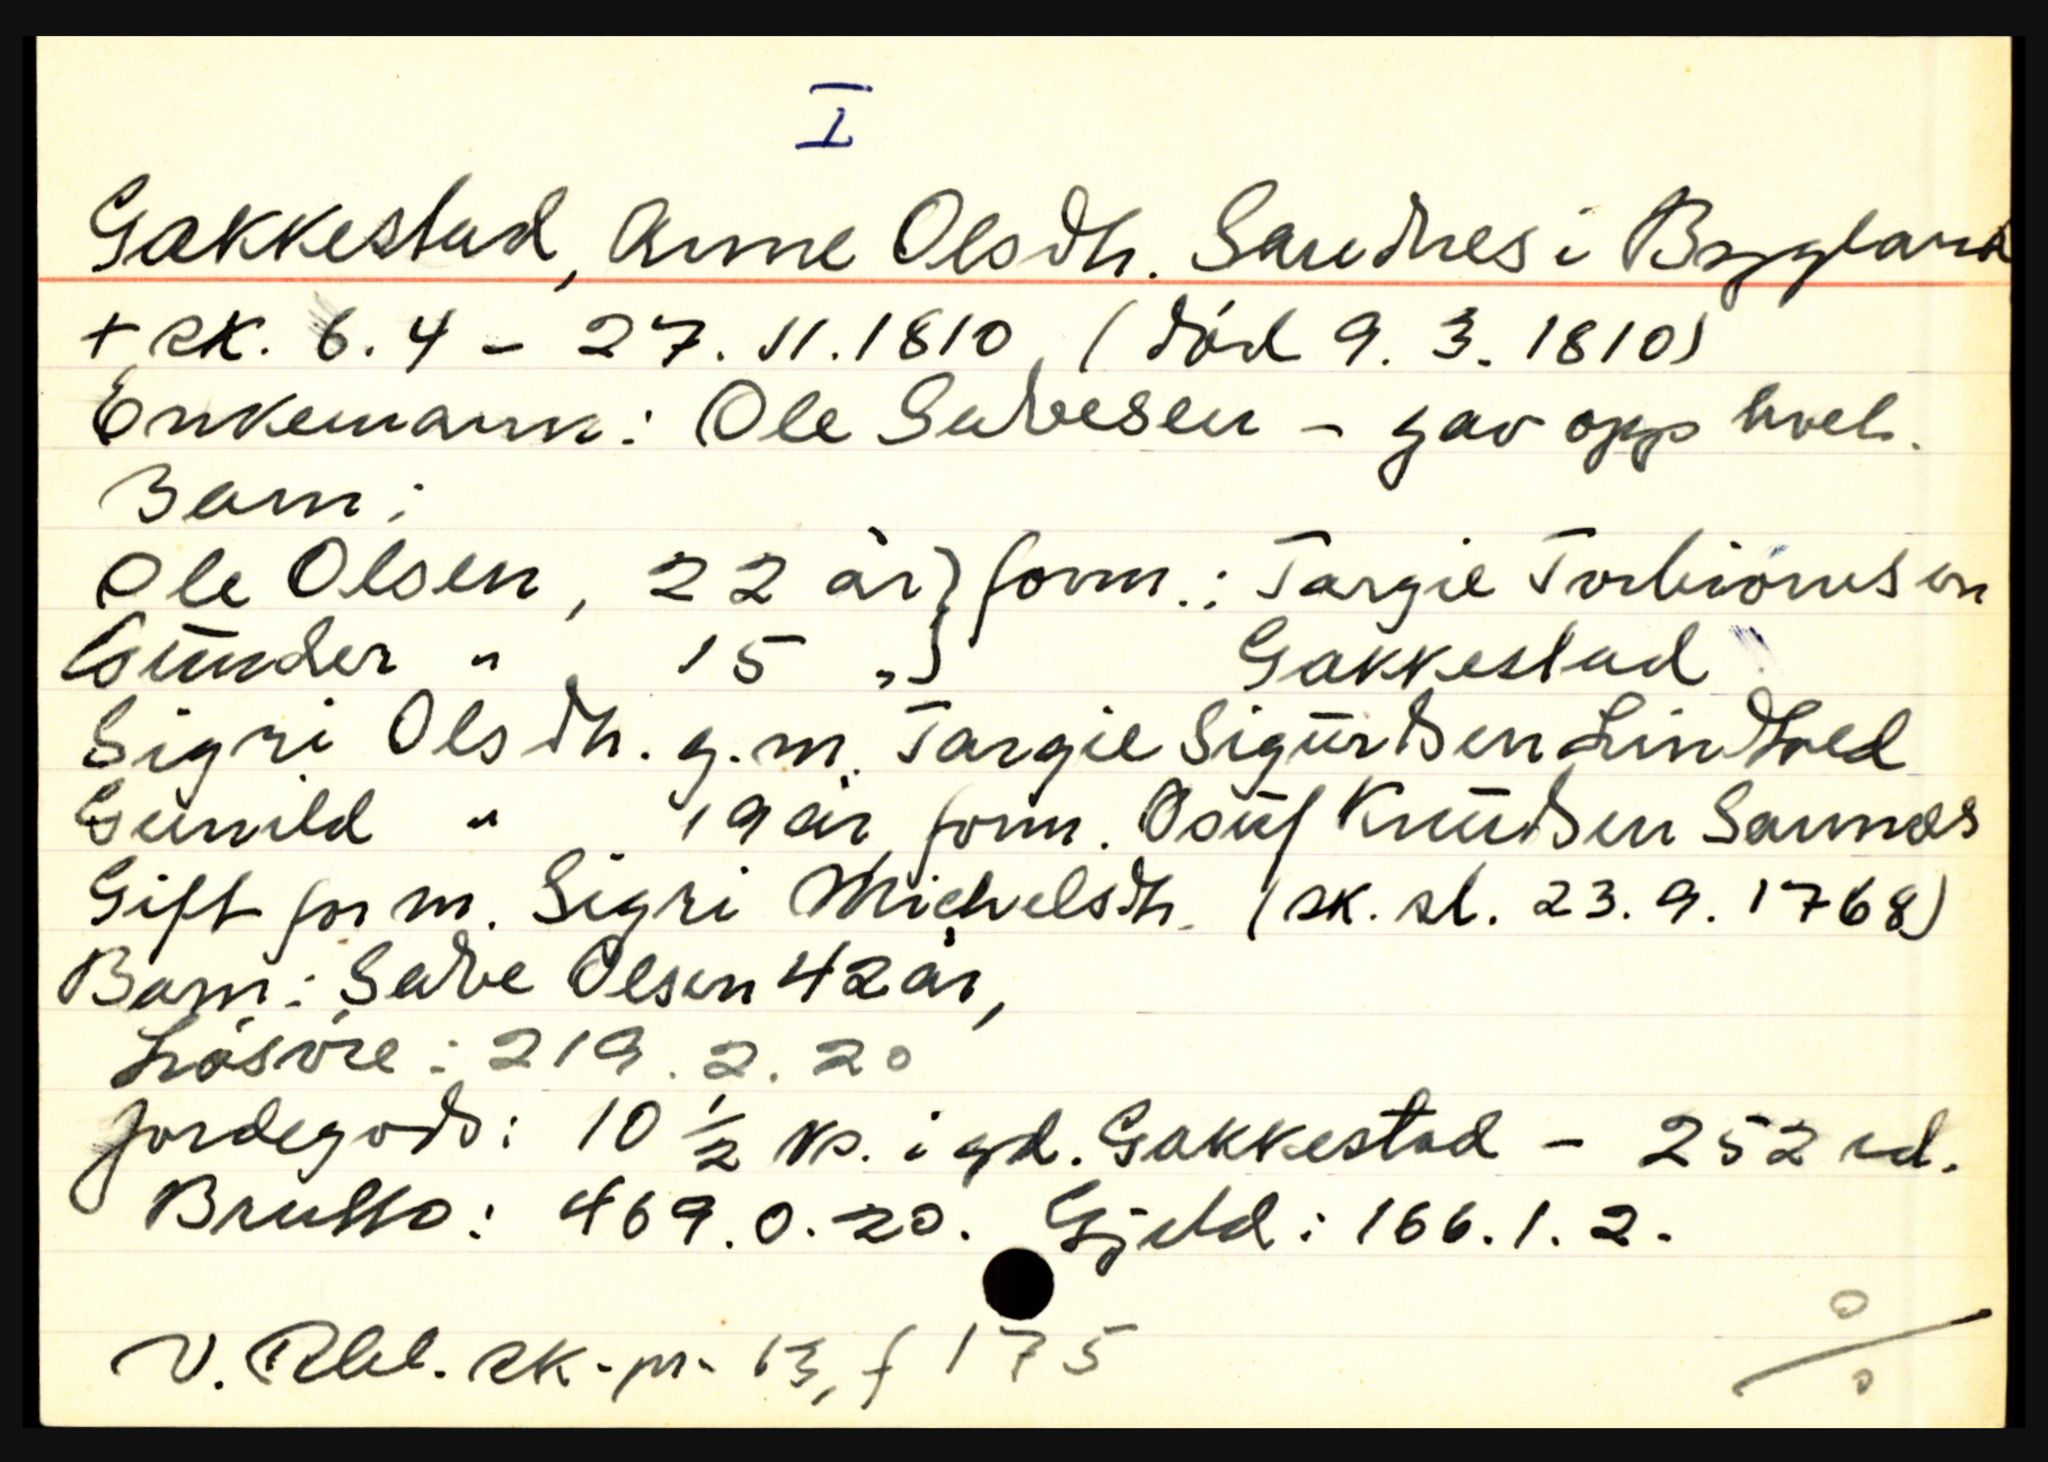 I
Gakkestad, Anne Olsdh. Sandnes i Bygland
+ sk. 6.4 - 27.11.1810 (död 9.3.1810)
Enkemann: Ole Salvesen - gav opp hvel.
Barn:
Ole Olsen, 22 år } form.: Targie Torbiörnsen
Gŭnder " 15 " } Gakkestad
Sigri Olsdh. g.m. Targie Sigŭrdsen Lindtved
Gunild " 19 år form. Osŭf Knŭdsen Sannæs
Gift for m. Sigri Michelsdh. (sk. sl. 23.9.1768)
Barn: Salve Olsen 42 år,
Lösöre: 219.2.20
Jordegods: 10 1/2 kp. i gd. Gakkestad - 252 rd.
Brutto: 469.0.20. Gjeld: 166.1.2.
V. Rbl. sk.-pr. 13, f 175